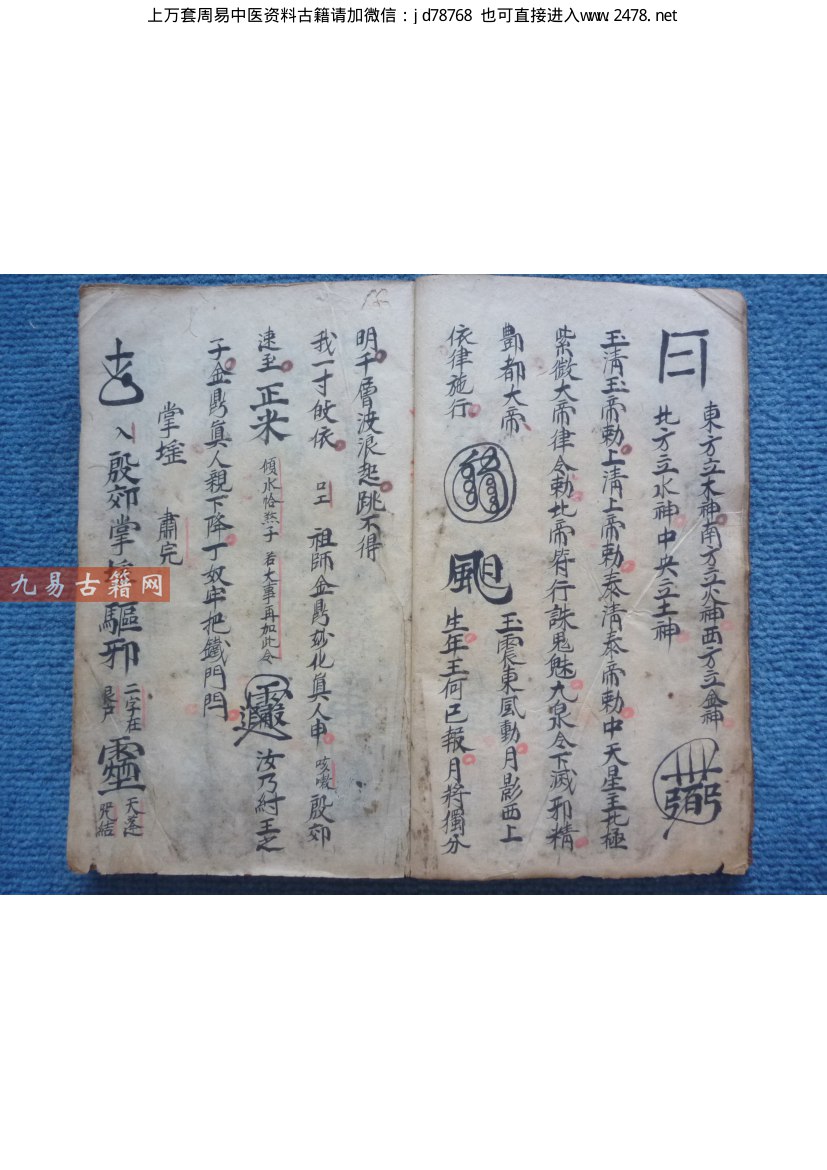 上万套周易中医资料古籍请加微信：jd78768 也可直接进入www.2478.net
東方立木神南方立火神西方立金神
北方立水神中央立土神
玉清玉帝勅上清上帝勅泰清泰帝勅中天星主北極
紫微大帝律令勅北帝蒼行誅鬼魅九泉令下滅邪精
酆都大帝
玉震東風動月影西上
依律施行
生年王何已報月将獨分
明千層波浪起跳不得
我一寸皈依
祖師金鼎妙化真人申
殷郊
速至
正米
傾水恰熬子
若大事再加此令
汝乃紂王之
子金鼎真人親下降丁奴牢把鐵門閂
掌
肅完
入殷郊掌
驅邪
二字在
艮戸
天蓬
咒結
九易古籍网